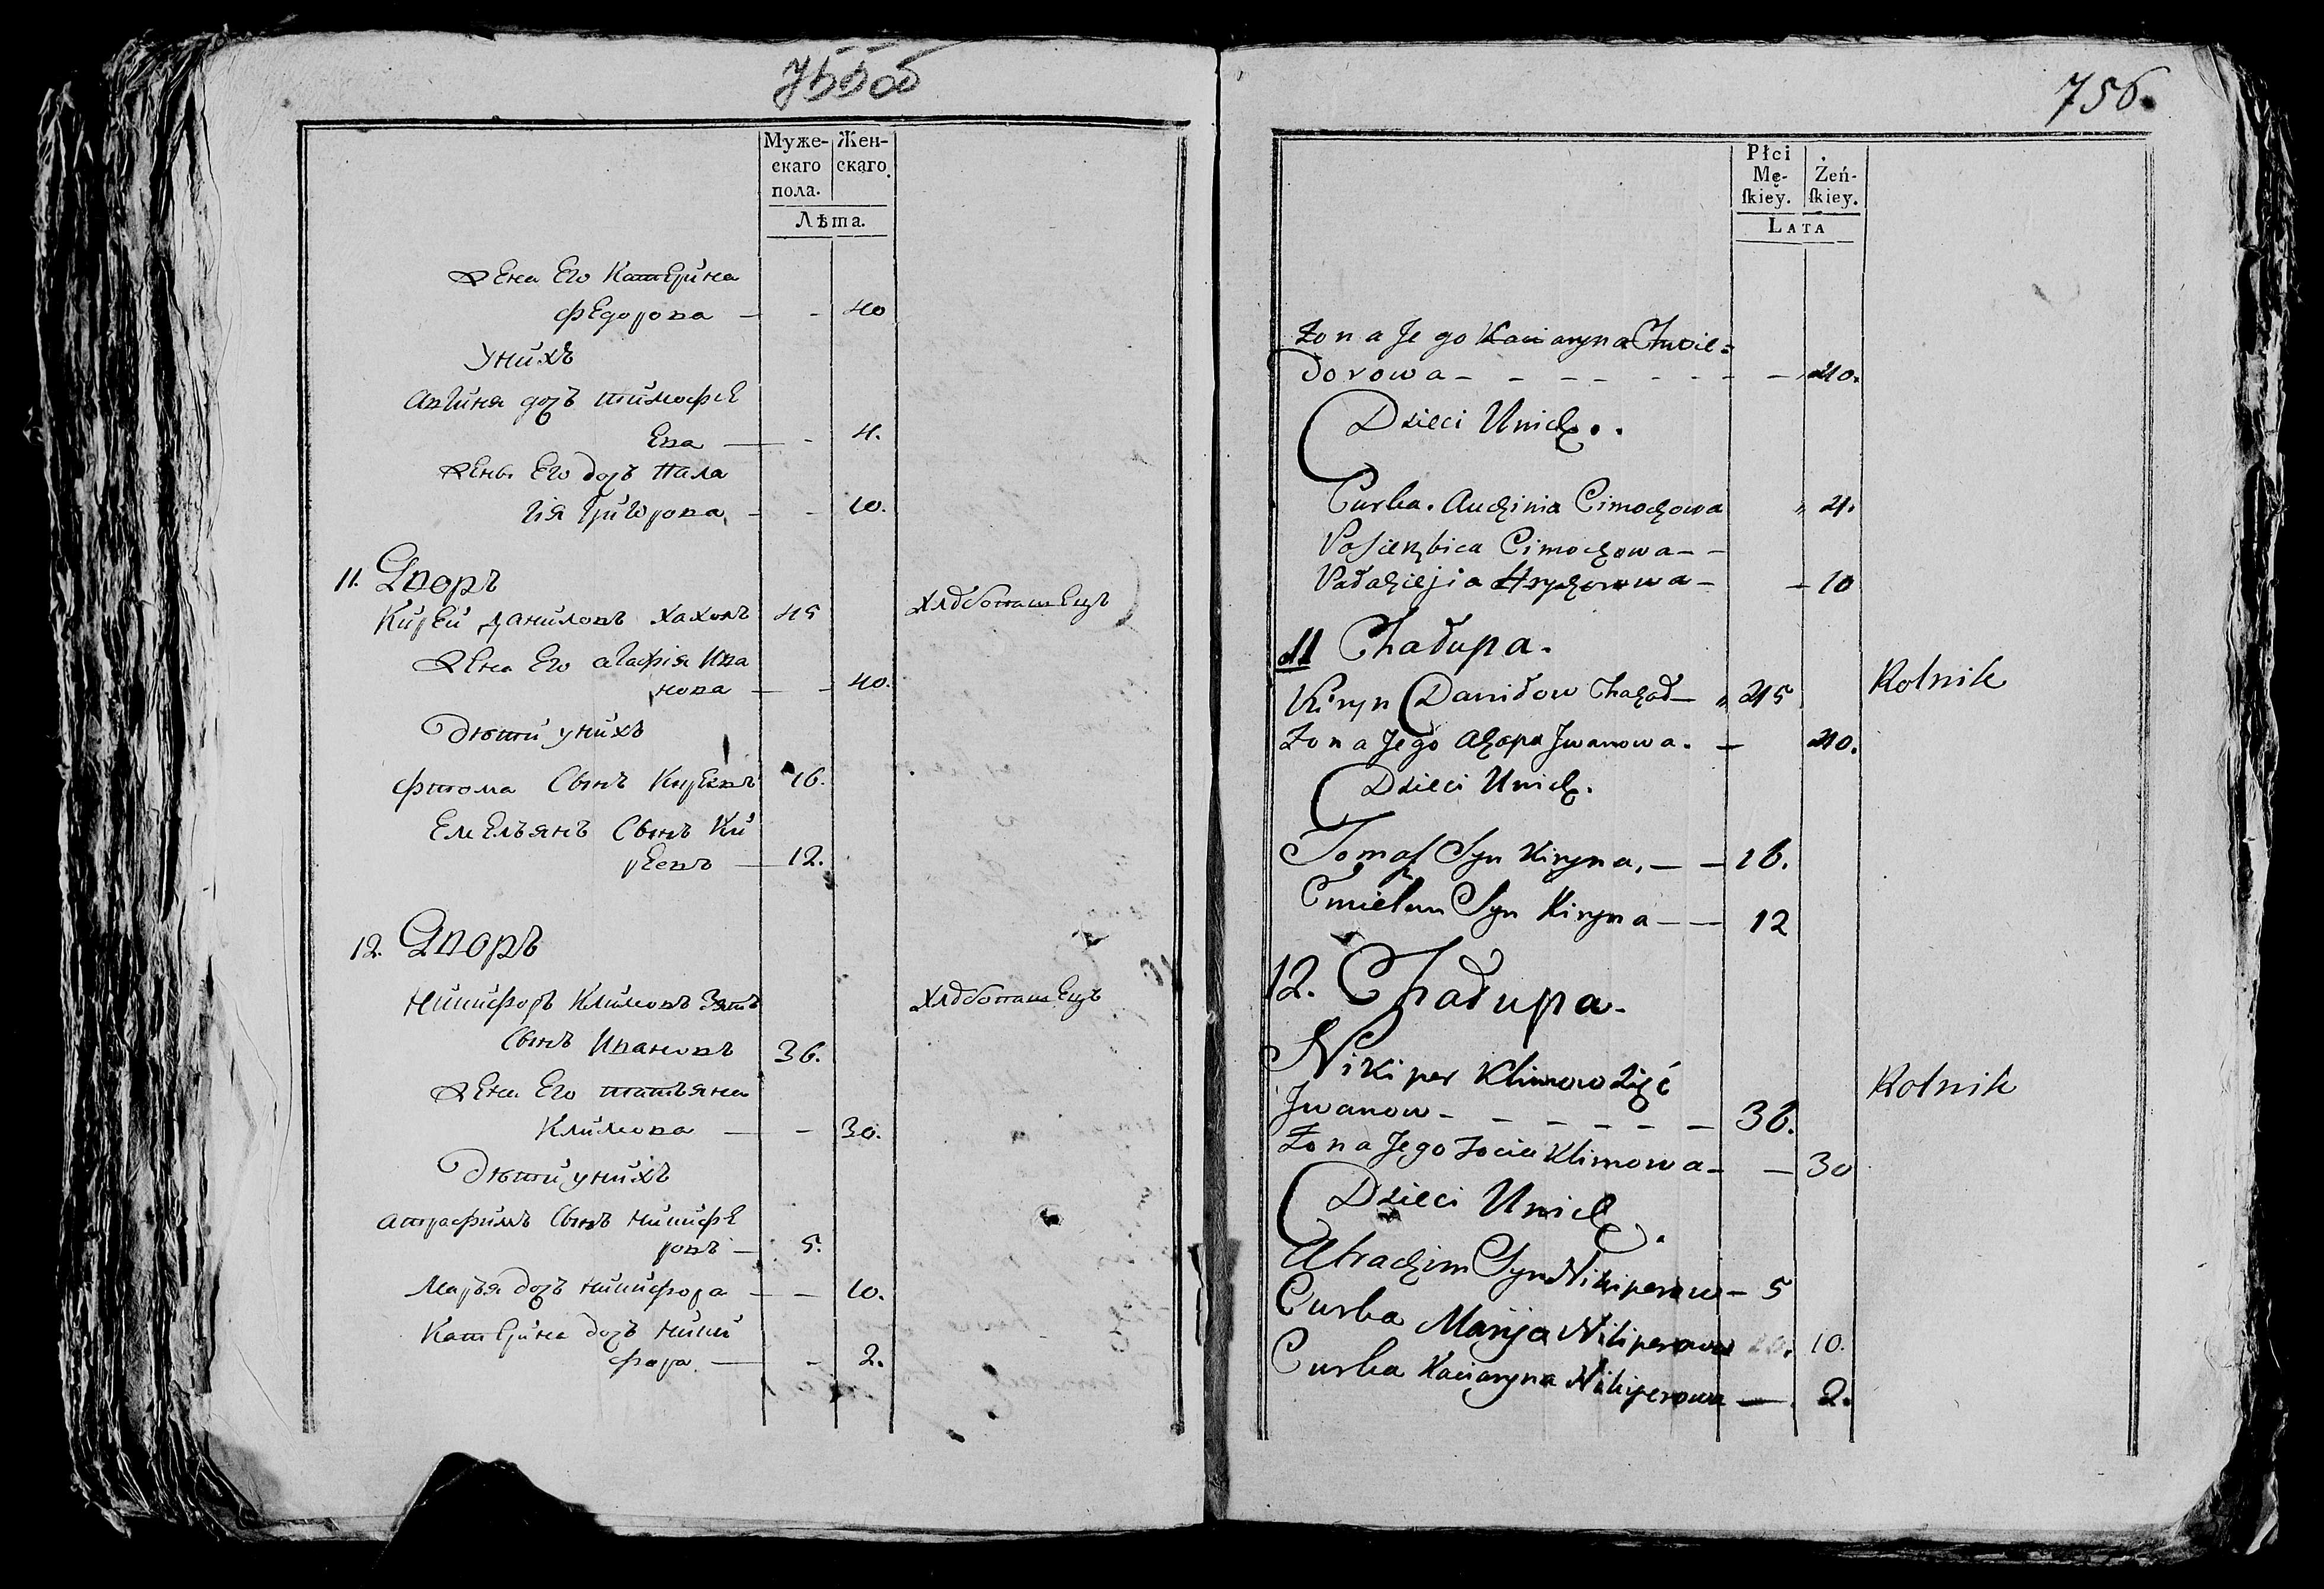 755об
Муже-
скаго
пола.
Жен-
скаго.
Лѣта.
Жена Его Катерина
Федорова - - 40
Унихъ
Авгиня дочъ тимофе
Ева — - 4.
Жены Его дочъ Пала
гія Григорова - - 10.
11. Дворъ
Кирей Даниловъ Хахолъ 45 Хлѣбопашецъ
Жена Его агафія Ива
нова — - 40.
Дѣти унихъ
Фтома Сынъ Киреевъ 16.
Емельянъ Сынъ Ки
реевъ — 12.
12. Дворъ
Никифоръ Климовъ Зять Хлѣбопашецъ
Сынъ Ивановъ 36.
Жена Его татьяна
Климова — - 30.
Дѣти унихъ
атрафимъ Сынъ никифе
ровъ — 5.
Марья дочъ никифора - - 10.
Катерина дочъ ники
фора. — - 2.
756.
Płci
Mę-
skiey.
Żeń-
skiey.
LATA
Żona Jego Kaciaryna Chwie=
dorowa - - - - - - - 40.
Dzieci Unich.
Curka. Auchinia Cimochowa 4.
Pasierzbica Cimochowa - -
Pałachieja Hrychorowa - - 10
11 Chałupa.
Kiryn Daniłow Chachoł - 45 Rolnik
Żona Jego Ahapa Jwanowa. - 40.
Dzieci Unich.
Tomasz Syn Kiryna. - - 16.
Emielan Syn Kiryna - - 12
12. Chałupa.
Nikiper Klimow Zięć Rolnik
Jwanow - - - - - - 36.
Żona Jego Tocia Klimowa - - 30
Dzieci Unich.
Atrachim Syn Nikiperow - 5
Curka Maryja Nikiperowa 10.
Curka Kaciaryna Nikiperowa — 2.